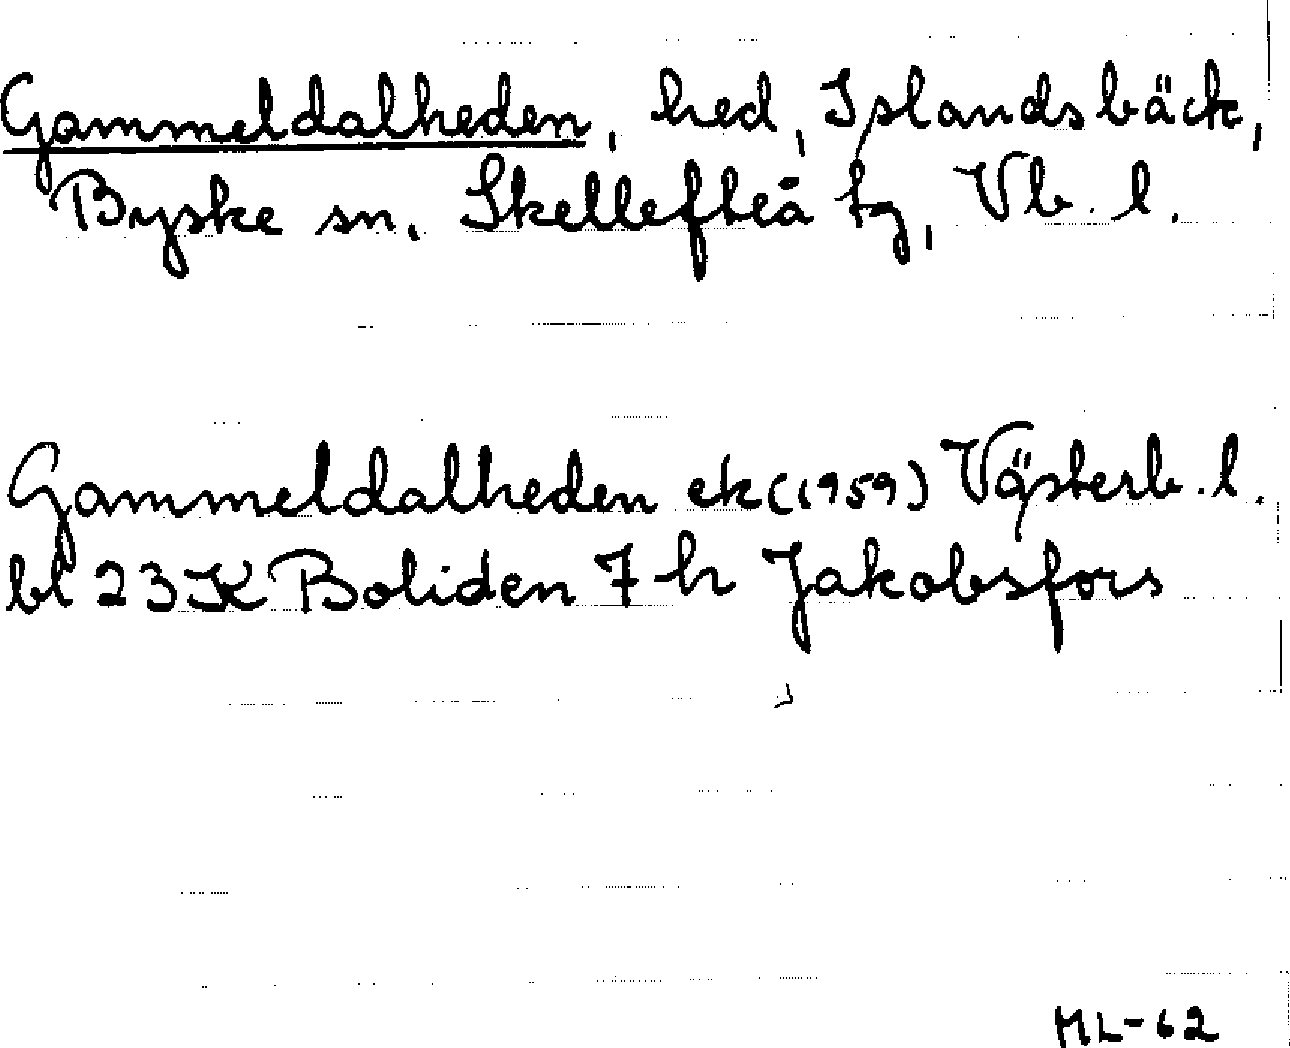 Gammeldalheden, hed, Islandsbäck,
Byske sn. Skellefteå tg, Vb. l.
Gammeldalheden ek (1959) Västerb. l.
bl 23K Boliden 7 h Jakobsfors
ML-62